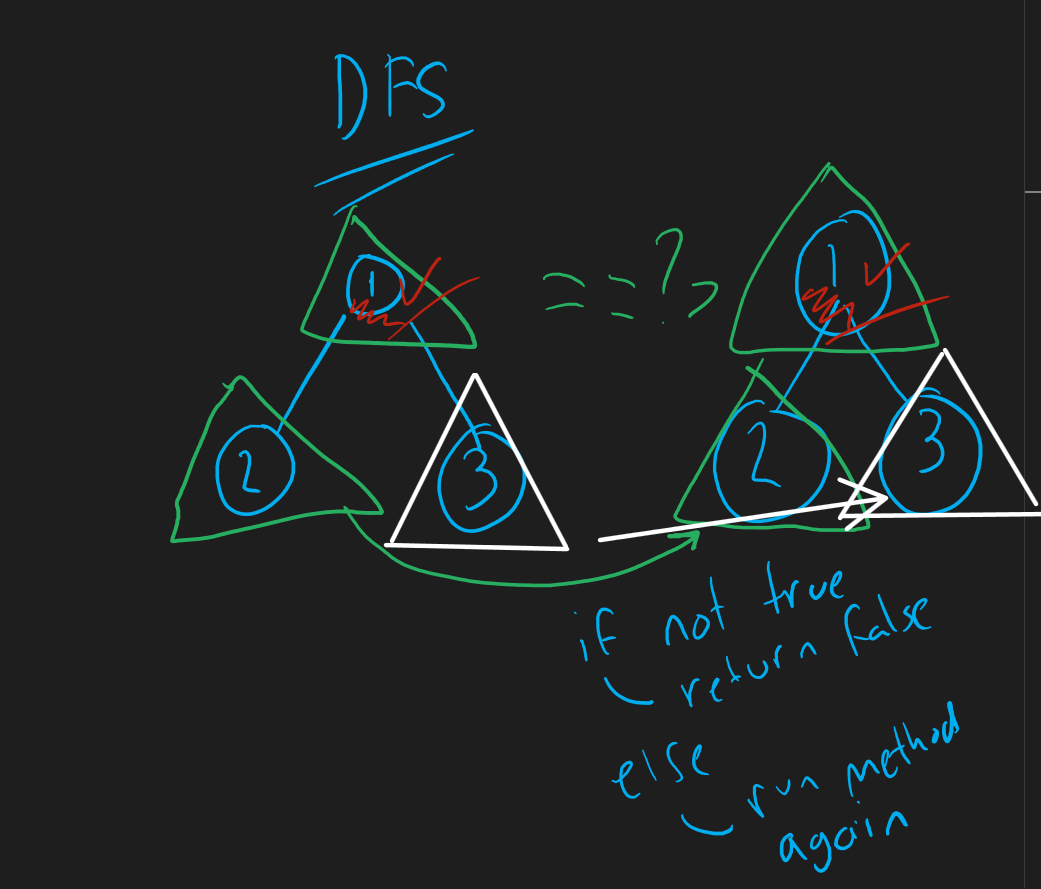 DFS
1 == ? 1
2 3 2 3
if not true
return false
else
run method
again